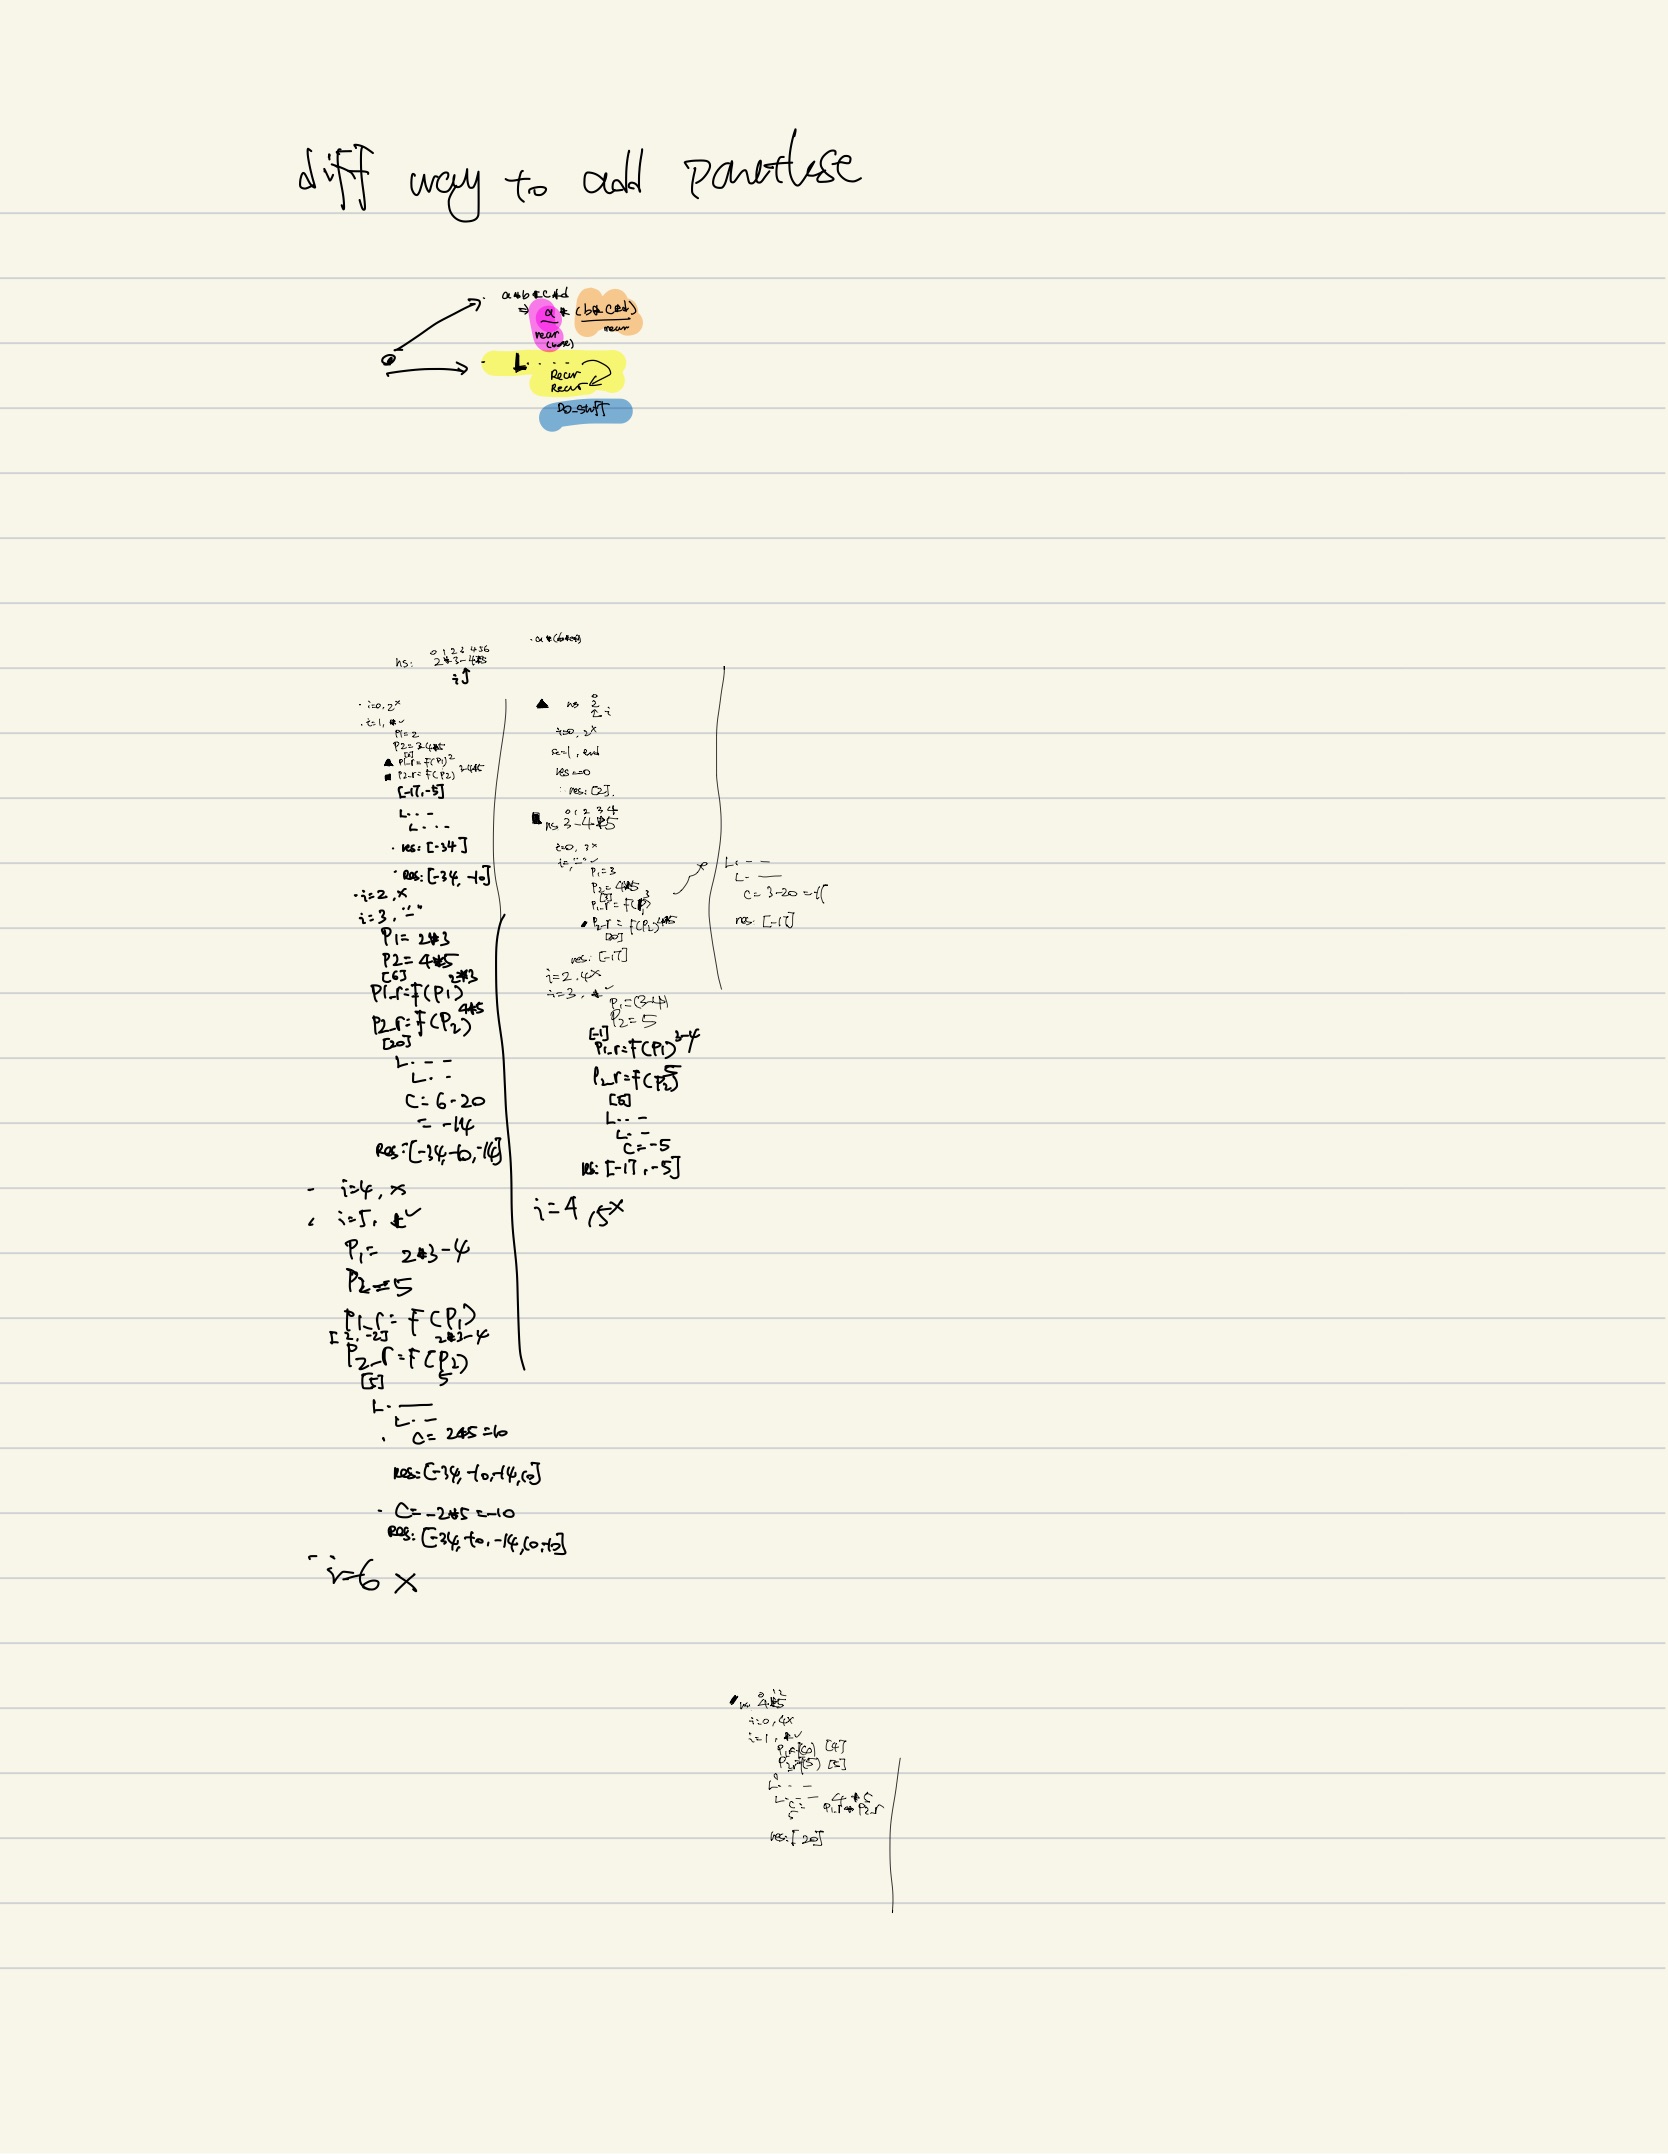 diff way to add parethese
a*b*c*d
⇒ a * (b*c*d)
recur recur
(base)
L · · · ·
Recur
Recur
Do_stuff
· a*(b*c*d)
0 1 2 3 4 5 6
ns: 2*3-4*5
i
· i=0, 2 x
· i=1, * ✓
P1=2
P2=3-4*5
[2]
▲ P1_r=F(P1) 2
■ P2_r=F(P2) 3-4*5
[-17,-5]
L · · -
L · · -
· res: [-34]
· Res: [-34, -10]
· i=2, x
i=3, "-"
P1= 2*3
P2= 4*5
[6] 2*3
P1_r=F(P1)
4*5
P2_r=F(P2)
[20]
L · - -
L · -
C= 6-20
= -14
Res: [-34,-10,-14]
- i=4, x
· i=5, * ✓
P1= 2*3-4
P2=5
P1_r= F(P1)
[2, -2] 2*3-4
P2_r=F(P2)
[5] 5
L · —
L · -
· C= 2*5=10
Res: [-34,-10,-14,10]
· C= -2*5=-10
Res: [-34,-10,-14,10,-10]
- i=6 x
0
▲ ns 2
↑ i
i=0, 2 x
i=1, end
res=0
res: [2].
0 1 2 3 4
■ ns 3-4*5
i=0, 3 x
i=1, "-" ✓
P1=3
P2=4*5
[3] 3
P1_r=F(P1)
P2_r=F(P2) 4*5
[20]
res: [-17]
i=2, 4 x
i=3, * ✓
P1=(3-4)
P2=5
[-1]
P1_r=F(P1) 3-4
P2_r=F(P2) 5
[5]
L · · -
L · -
C=-5
res: [-17, -5]
i=4, 5 x
L · - -
L · —
C= 3-20=-17
res: [-17]
0 1 2
ns. 4*5
i=0, 4 x
i=1, * ✓
P1_r=F(4) [4]
P2_r=F(5) [5]
L · · -
L · - - 4*5
C= P1_r*P2_r
res: [20]